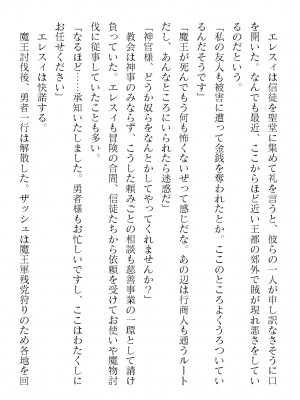 エレスィは信徒を聖堂に集めて礼を言うと、彼らの一人が申し訳なさそうに口
を開いた。なんでも最近、ここからほど近い王都の郊外で賊が現れ悪さをしてい
るのだという。
「私の友人も被害に遭って金銭を奪われたとか。ここのところよくうろついてい
るんだそうです」
「魔王が死んでもう何も怖くないぜって感じだな。あの辺は行商人も通うルート
だし、あんなところにいられたら迷惑だ」
「神官様、どうか奴らをなんとかしてやってくれませんか？」
教会は神事のみならず、こうした頼みごとの相談も慈善事業の一環として請け
負っていた。エレスィも冒険の合間、信徒たちから依頼を受けてお使いや魔物討
伐に従事していたことも多い。
「なるほど……承知いたしました。勇者様もお忙しいですし、ここはわたくしに
お任せください」
エレスィは快諾する。
魔王討伐後、勇者一行は解散した。ザッシュは魔王軍残党狩りのため各地を回